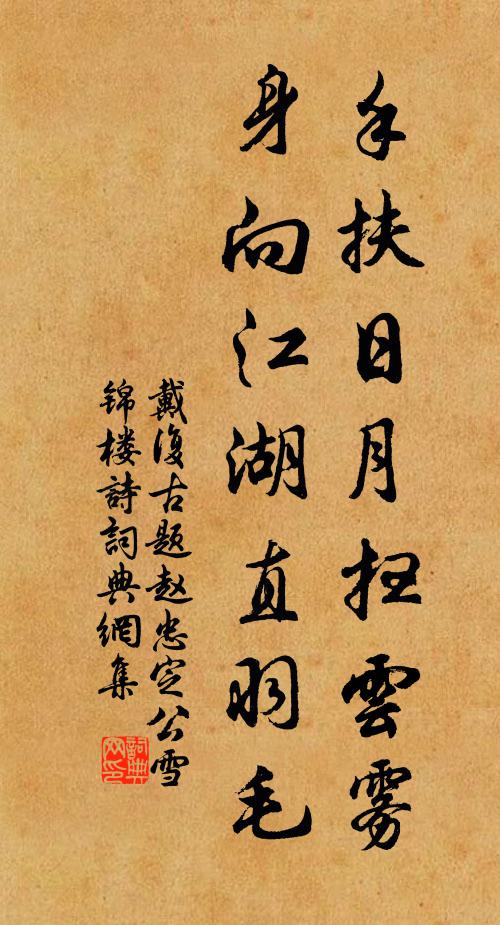 手扶日月扫雲雾
身向江湖直羽毛
戴復古题赵忠定公雪
锦楼詩詞典網集
詞典
网印